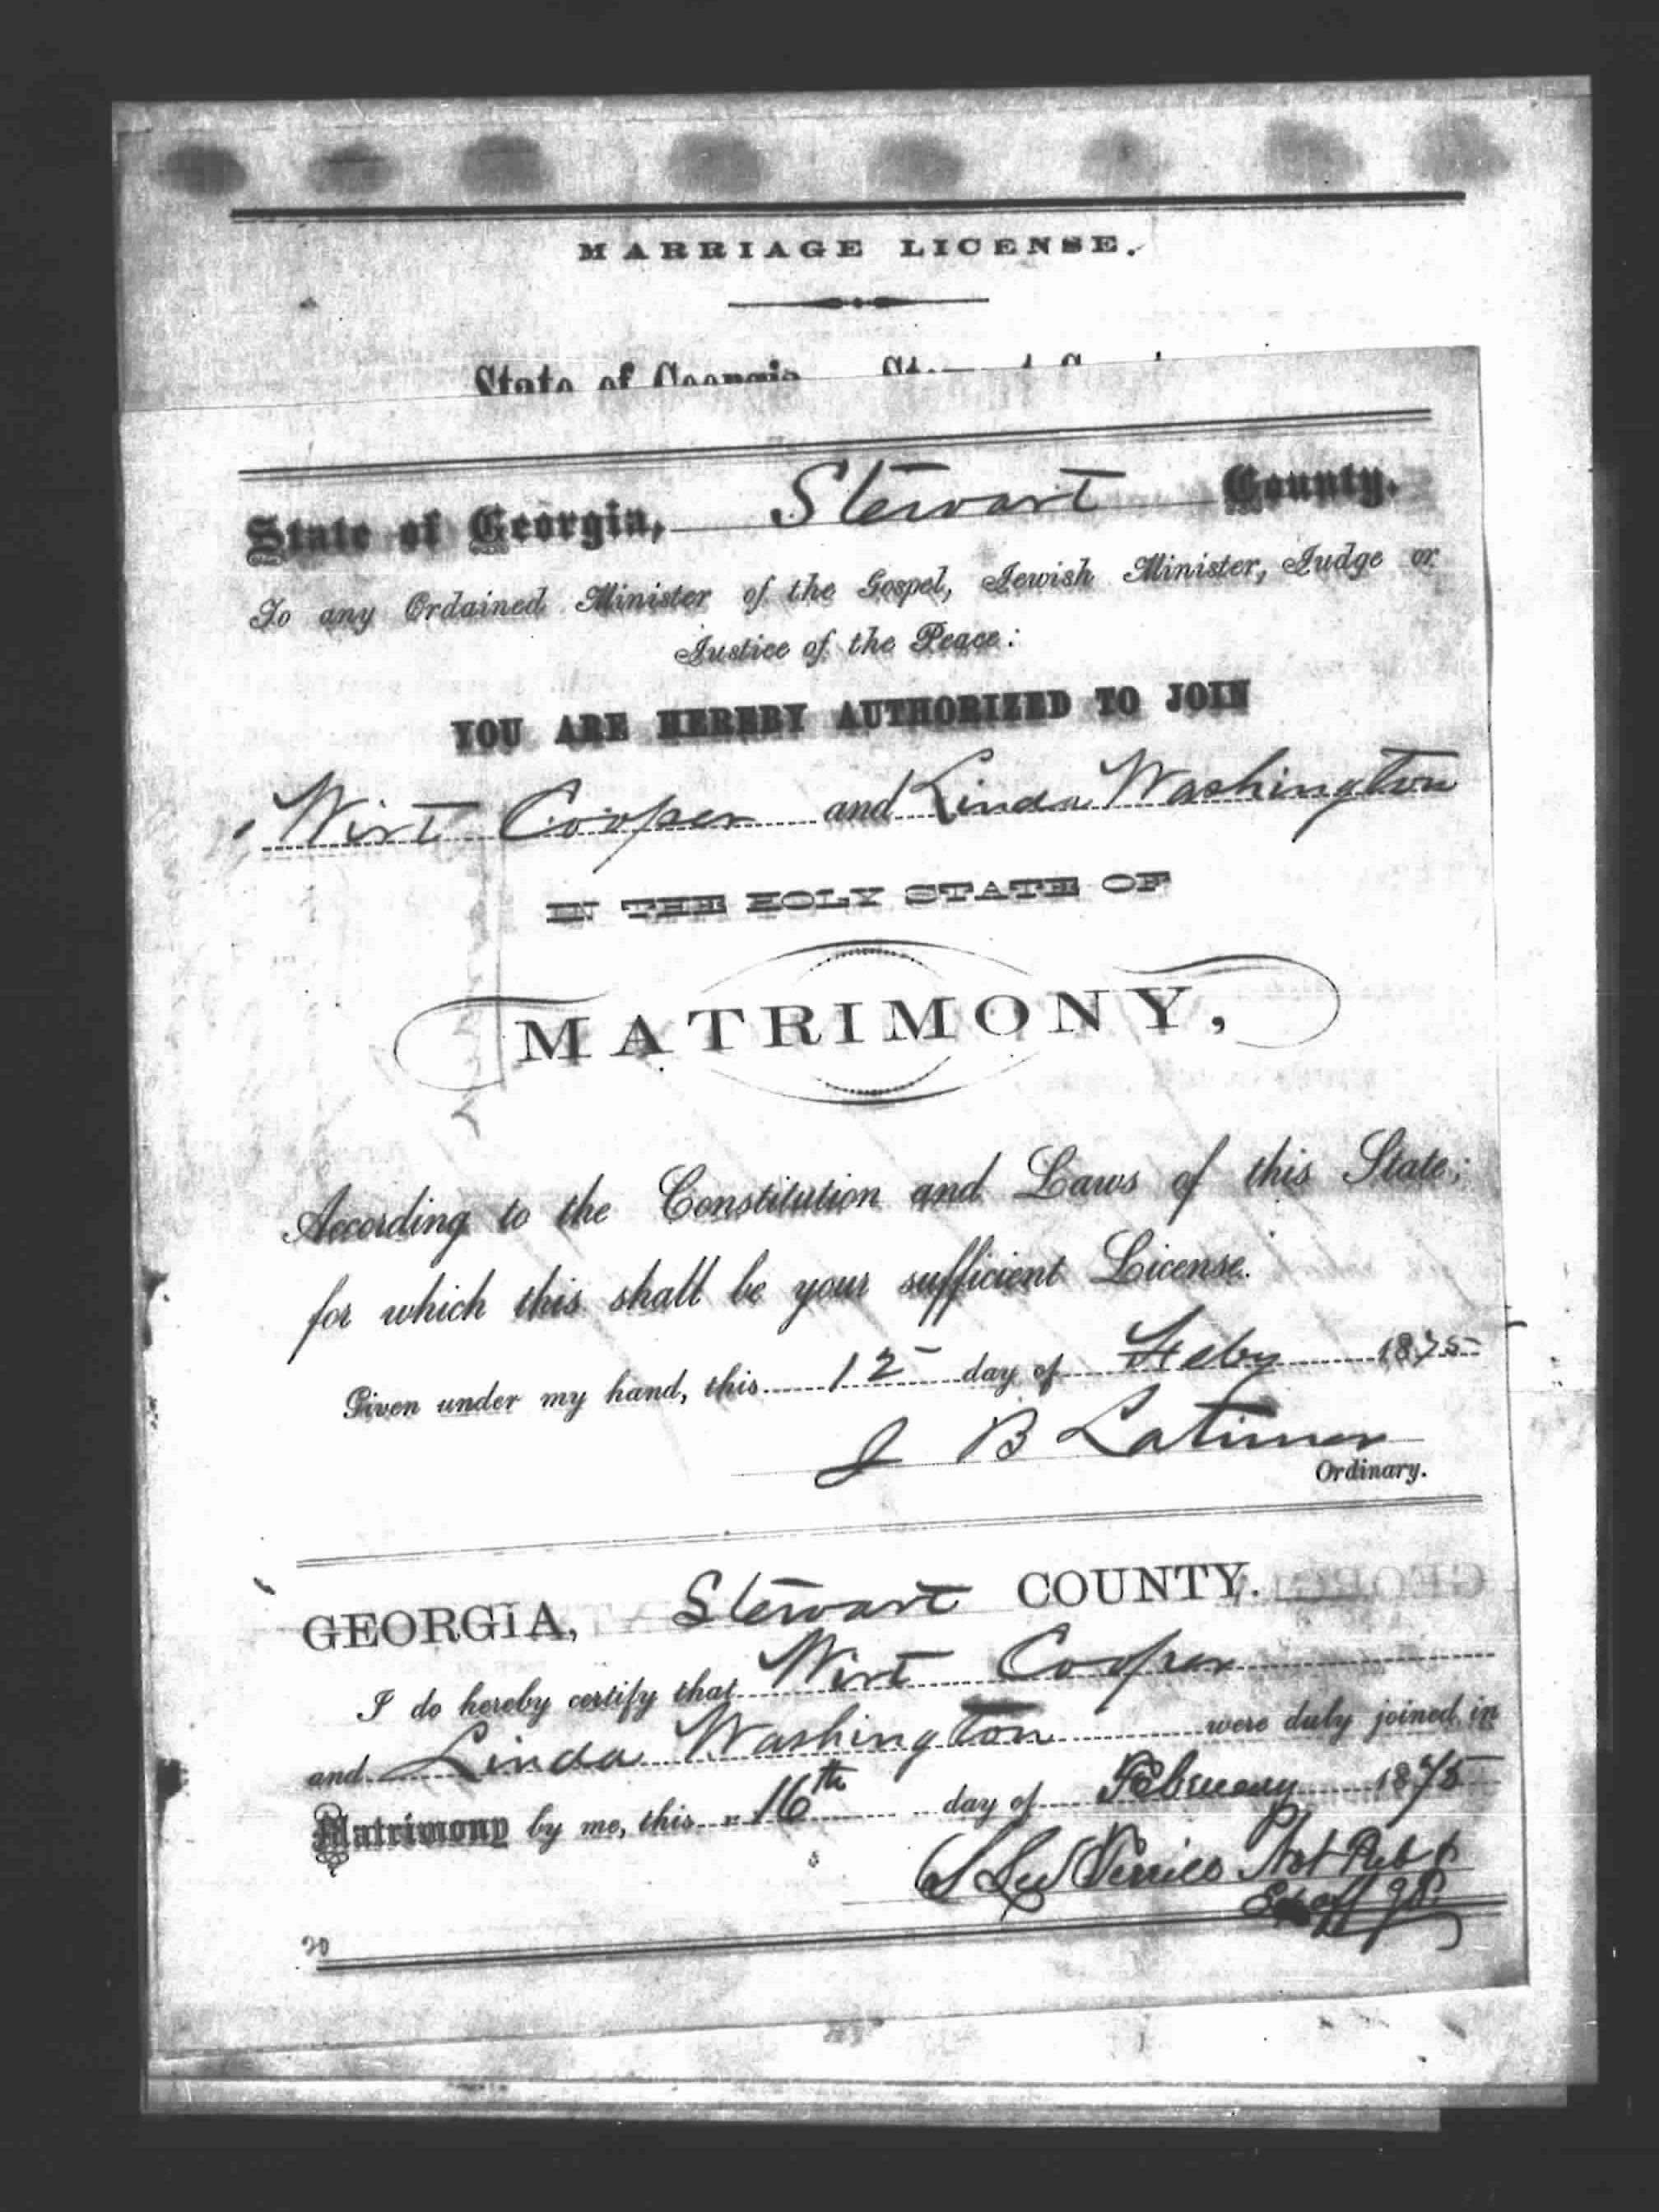 MARRIAGE LICENSE.
State of Georgia
State of Georgia, Stewart County.
To any Ordained Minister of the Gospel, Jewish Minister, Judge or
Justice of the Peace:
YOU ARE HEREBY AUTHORIZED TO JOIN
Wirt Cooper and Linda Washington
IN THE HOLY STATE OF
MATRIMONY,
According to the Constitution and Laws of this State;
for which this shall be your sufficient License.
Given under my hand, this 12 day of Feby 1875
J B Latimer
Ordinary.
GEORGIA, Stewart COUNTY.
I do hereby certify that Wirt Cooper
and Linda Washington were duly joined in
Matrimony by me, this 16th day of February 1875
Not Pub &
Ex off JP
20